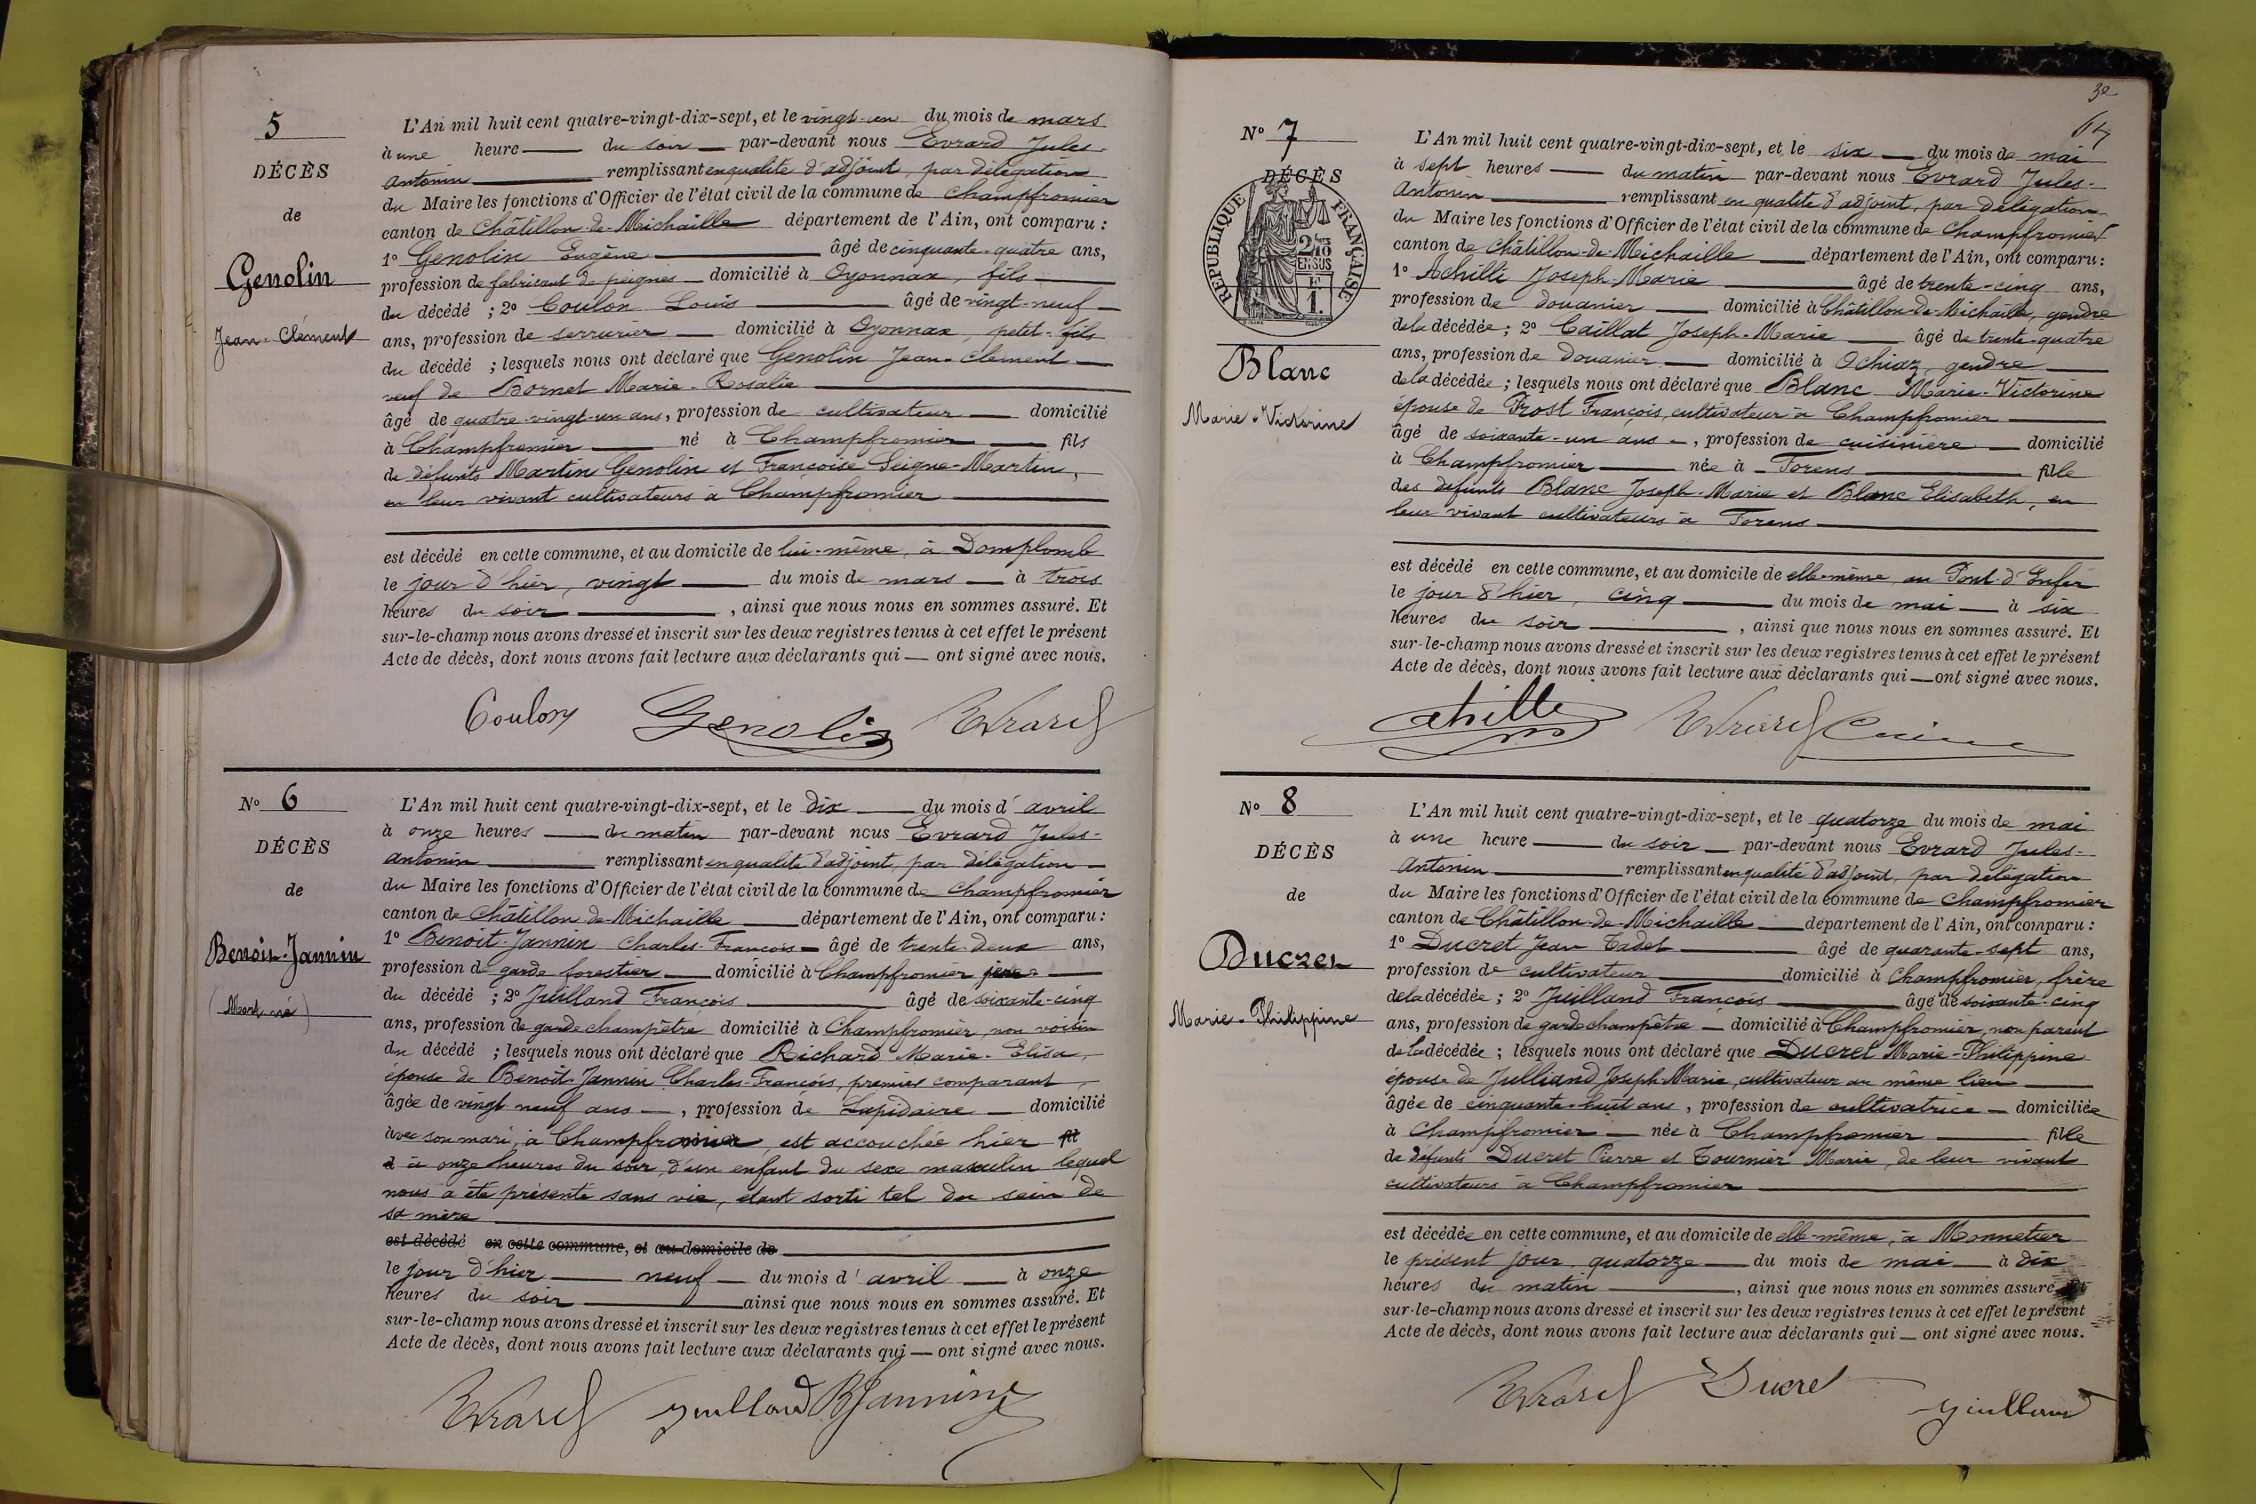 5
DÉCÈS
de
Genolin
Jean-Clément
L'An mil huit cent quatre-vingt-dix-sept, et le vingt-un du mois de mars
à une heure du soir par-devant nous Evrard Jules-
Antonin remplissant en qualité d'adjoint, par délégation
du Maire les fonctions d'Officier de l'état civil de la commune de Champfromier
canton de Châtillon-de-Michaille département de l'Ain, ont comparu :
1° Genolin Eugène âgé de cinquante-quatre ans,
profession de fabricant de peignes domicilié à Oyonnax, fils
du décédé ; 2° Coulon Louis âgé de vingt-neuf
ans, profession de serrurier domicilié à Oyonnax, petit-fils
du décédé ; lesquels nous ont déclaré que Genolin Jean-Clément
veuf de Bornet Marie-Rosalie
âgé de quatre-vingt-un ans, profession de cultivateur domicilié
à Champfromier né à Champfromier fils
de défunts Martin Genolin et Françoise Seigne-Martin,
en leur vivant cultivateurs à Champfromier
est décédé en cette commune, et au domicile de lui-même, à Domplomb
le jour d'hier, vingt du mois de mars à trois
heures du soir, ainsi que nous nous en sommes assuré. Et
sur-le-champ nous avons dressé et inscrit sur les deux registres tenus à cet effet le présent
Acte de décès, dont nous avons fait lecture aux déclarants qui ont signé avec nous.
Coulon Genolin Evrard
N° 6
DÉCÈS
de
Benoit-Jannin
(Mort né)
L'An mil huit cent quatre-vingt-dix-sept, et le dix du mois d'avril
à onze heures du matin par-devant nous Evrard Jules-
Antonin remplissant en qualité d'adjoint, par délégation
du Maire les fonctions d'Officier de l'état civil de la commune de Champfromier
canton de Châtillon-de-Michaille département de l'Ain, ont comparu :
1° Benoit-Jannin Charles-François âgé de trente-deux ans,
profession de garde forestier domicilié à Champfromier père
du décédé ; 2° Juilland François âgé de soixante-cinq
ans, profession de garde champêtre domicilié à Champfromier, non voisin
du décédé ; lesquels nous ont déclaré que Richard Marie-Elisa,
épouse de Benoit-Jannin Charles-François, premier comparant,
âgée de vingt neuf ans, profession de Lapidaire domicilié
avec son mari, à Champfromier, est accouchée hier
à onze heures du soir, d'un enfant du sexe masculin lequel
nous a été présenté sans vie, étant sorti tel du sein de
sa mère
est décédé en cette commune, et au domicile de
le jour d'hier neuf du mois d'avril à onze
heures du soir ainsi que nous nous en sommes assuré. Et
sur-le-champ nous avons dressé et inscrit sur les deux registres tenus à cet effet le présent
Acte de décès, dont nous avons fait lecture aux déclarants qui ont signé avec nous.
Evrard Juilland BJannin
32
N° 7
DÉCÈS
RÉPUBLIQUE FRANÇAISE
2/10 EN SUS
1.
Blanc
Marie-Victorine
L'An mil huit cent quatre-vingt-dix-sept, et le six du mois de mai
à sept heures du matin par-devant nous Evrard Jules-
Antonin remplissant en qualité d'adjoint, par délégation
du Maire les fonctions d'Officier de l'état civil de la commune de Champfromier
canton de Châtillon-de-Michaille département de l'Ain, ont comparu :
1° Achille Joseph-Marie âgé de trente-cinq ans,
profession de douanier domicilié à Châtillon-de-Michaille, gendre
de la décédée ; 2° Caillat Joseph-Marie âgé de trente-quatre
ans, profession de Douanier domicilié à Ochiaz, gendre
de la décédée ; lesquels nous ont déclaré que Blanc Marie-Victorine
épouse de Prost François, cultivateur à Champfromier
âgé de soixante-un ans, profession de cuisinière domicilié
à Champfromier née à Forens fille
des défunts Blanc Joseph-Marie et Blanc Elisabeth, en
leur vivant cultivateurs à Forens
est décédé en cette commune, et au domicile de elle-même, au Pont-d'Enfer
le jour d'hier, cinq du mois de mai à six
heures du soir, ainsi que nous nous en sommes assuré. Et
sur-le-champ nous avons dressé et inscrit sur les deux registres tenus à cet effet le présent
Acte de décès, dont nous avons fait lecture aux déclarants qui ont signé avec nous.
Achille Evrard
N° 8
DÉCÈS
de
Ducret
Marie-Philippine
L'An mil huit cent quatre-vingt-dix-sept, et le quatorze du mois de mai
à une heure du soir par-devant nous Evrard Jules-
Antonin remplissant en qualité d'adjoint, par délégation
du Maire les fonctions d'Officier de l'état civil de la commune de Champfromier
canton de Châtillon-de-Michaille département de l'Ain, ont comparu :
1° Ducret Jean Cadet âgé de quarante-sept ans,
profession de cultivateur domicilié à Champfromier, frère
de la décédée ; 2° Juilland François âgé de soixante-cinq
ans, profession de garde champêtre domicilié à Champfromier, non parent
de la décédée ; lesquels nous ont déclaré que Ducret Marie-Philippine
épouse de Julliand Joseph-Marie, cultivateur au même lieu
âgée de cinquante-huit ans, profession de cultivatrice domiciliée
à Champfromier née à Champfromier fille
de défunts Ducret Pierre et Tournier Marie, de leur vivant
cultivateurs à Champfromier
est décédée en cette commune, et au domicile de elle-même, à Monnetier
le présent jour quatorze du mois de mai à dix
heures du matin, ainsi que nous nous en sommes assuré Et
sur-le-champ nous avons dressé et inscrit sur les deux registres tenus à cet effet le présent
Acte de décès, dont nous avons fait lecture aux déclarants qui ont signé avec nous.
Evrard Ducret Juilland